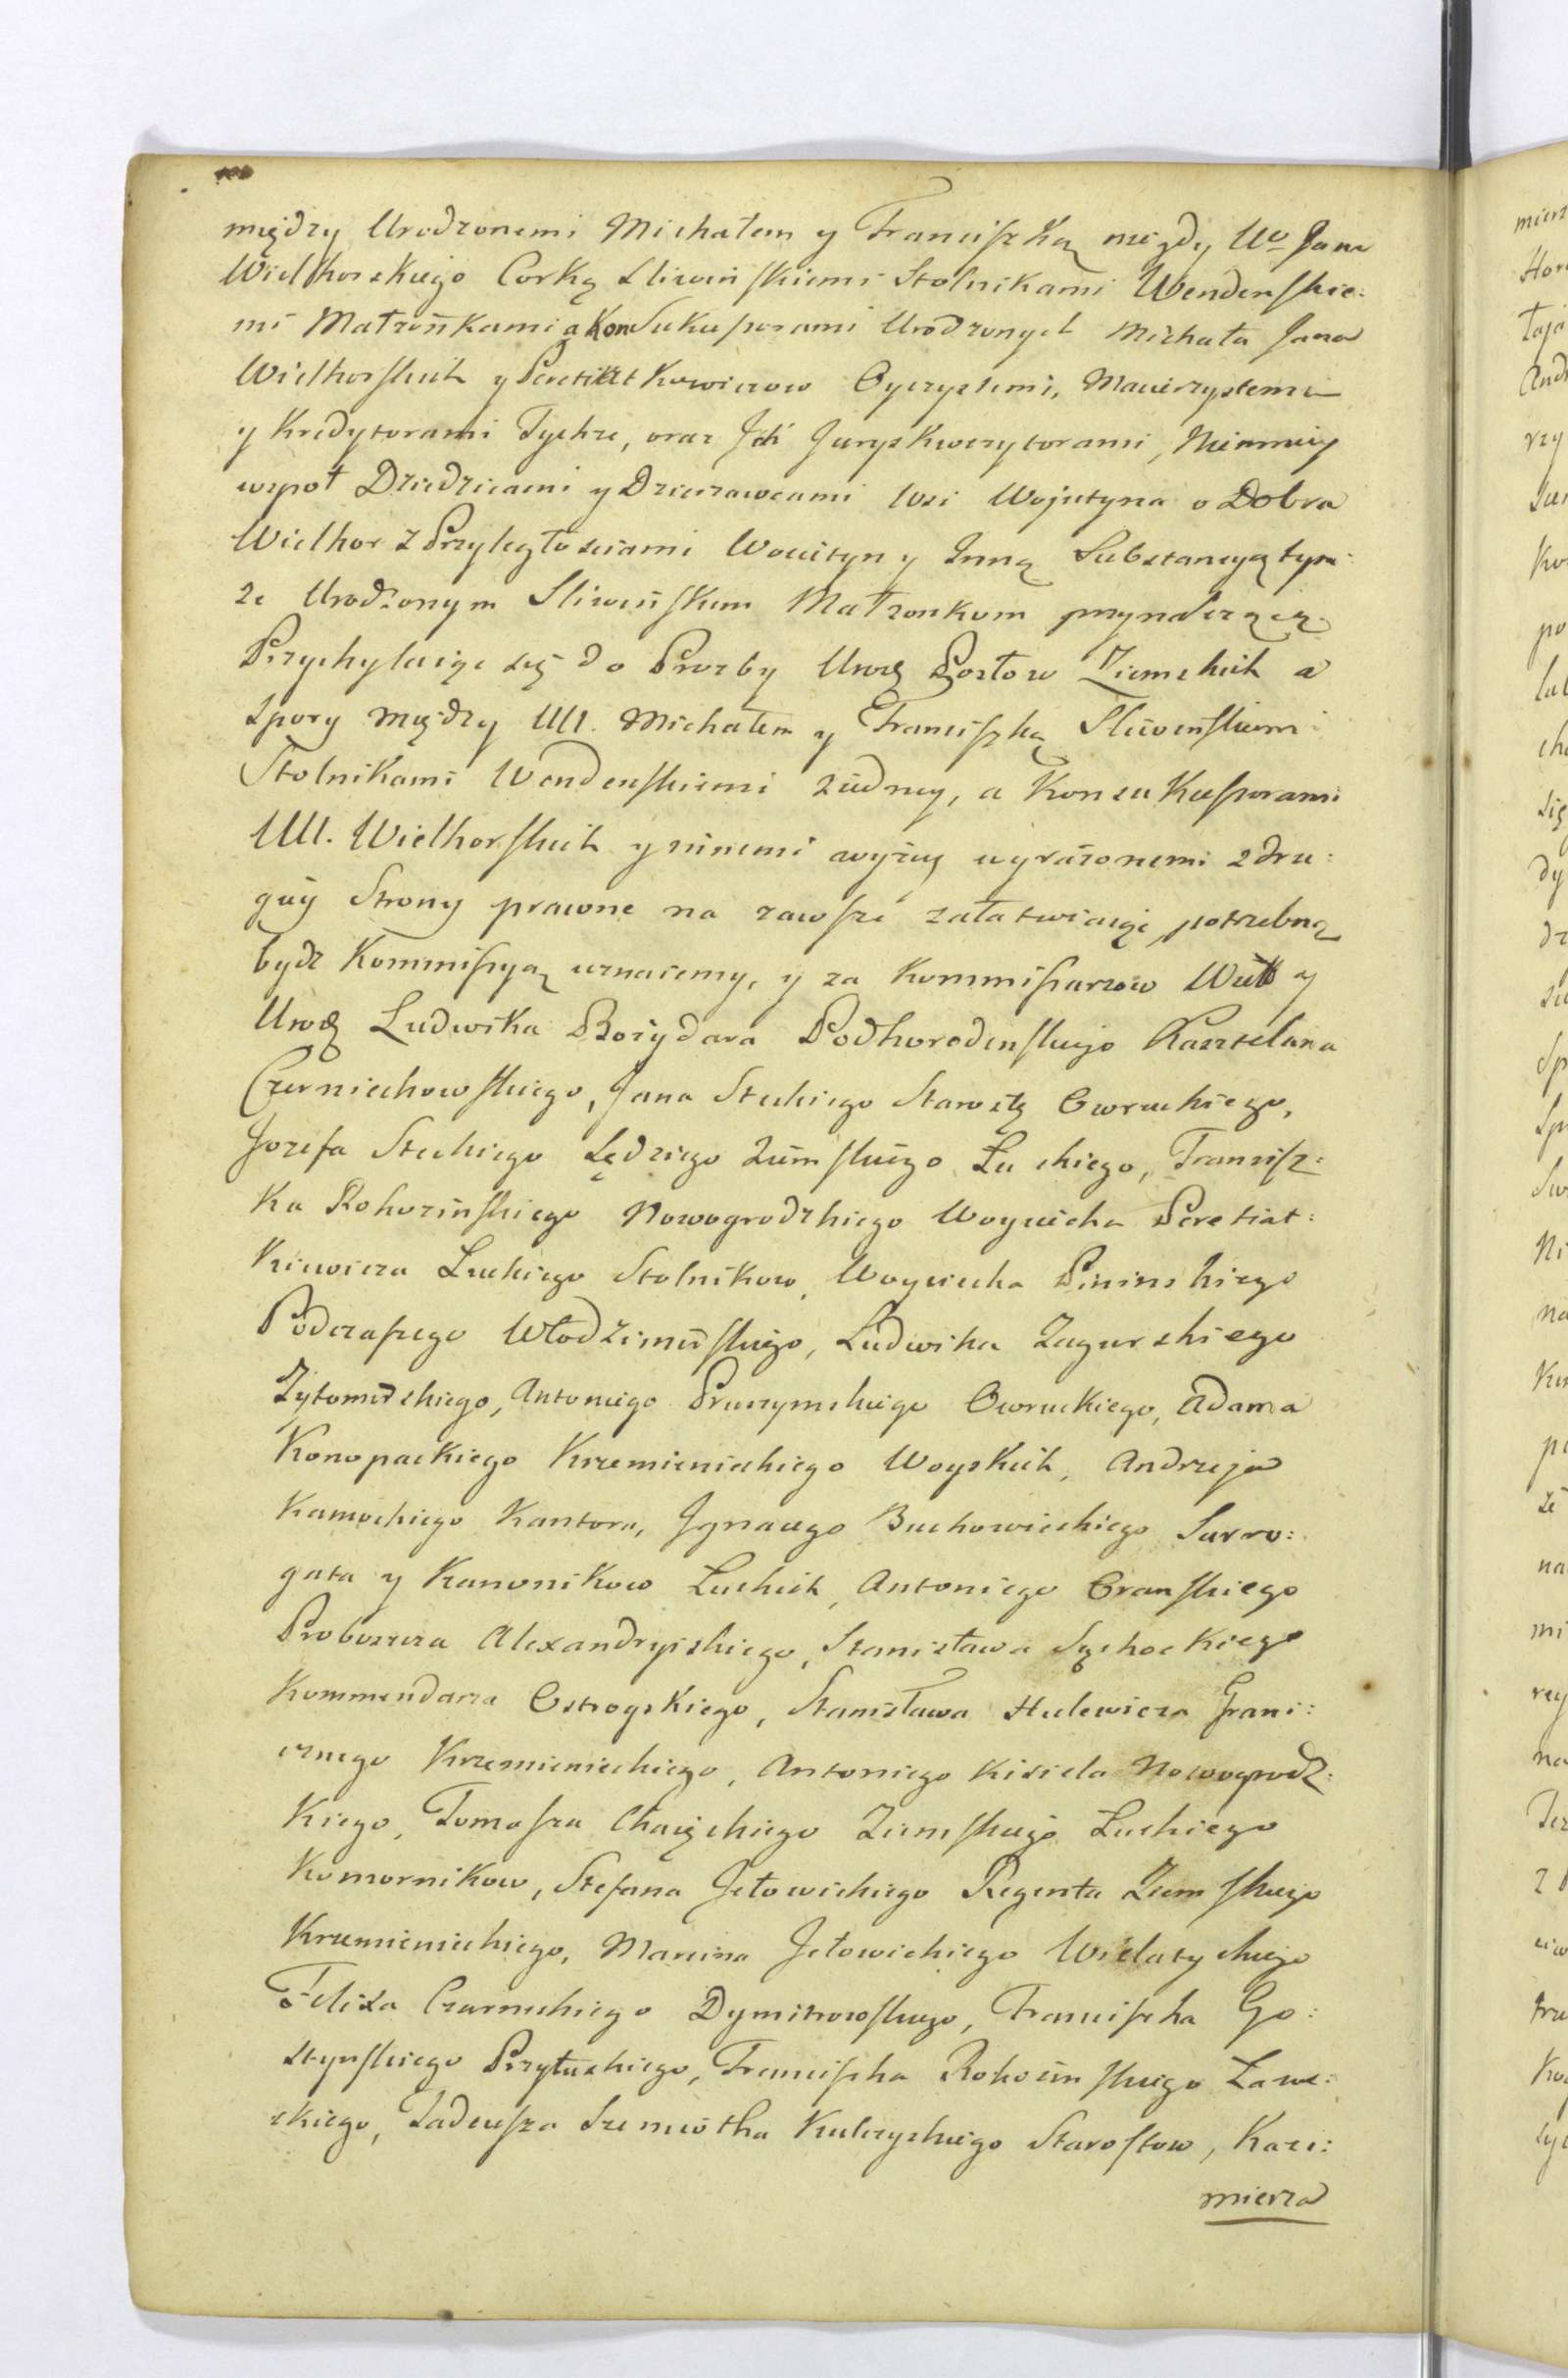 między Urodzonemi Michałem y Franciszką niegdy Uo Jana
Wielhorskiego Corką Sliwinskiemi Stolnikami Wendenskie:
mi Małżonkami a Konsukusorami Urodzonych Michała Jana
Wielhorskich y Peretiatkowiczow Oyczystemi, Macierzystemi
y Kredytorami Tychże, oraz Ich Juryskwezytorami, Niemniey
wspoł Dziedzicami y Dzierzawcami Wsi Wojutyna o Dobra
Wielhor z Przyległosciami Woiutyn y Inną Substancyą tym:
że Urodzonym Sliwinskim Małżonkom przynależącą.
Przychylaiąc się do Prozby Urodz Posłow Ziemskich a
spory między UU. Michałem y Franciszką Sliwinskiemi
Stolnikami Wendenskiemi z iedney, a Konsukusorami
UU. Wielhorskich y innemi wyżey wyrażonemi z dru:
giey Strony prawne na zawsze załatwiaiąc, potrzebną
bydz Kommissyą uznaiemy, y za Kommissarzow Wielb y
Urodz Ludwika Bożydara Podhorodenskiego Kasztelana
Czerniechowskiego, Jana Steckiego Starostę Owruckiego,
Jozefa Steckiego Sędziego Ziemskiego Łuckiego, Francisz:
ka Rohozinskiego Nowogrodzkiego Woyciecha Peretiat:
kiewicza Łuckiego Stolnikow, Woyciecha Pininskiego
Podczaszego Włodzimirskiego, Ludwika Zagurskiego
Zytomirskiego, Antoniego Pruszynskiego Owruckiego, Adama
Konopackiego Krzemienieckiego Woyskich, Andrzeja
Kamockiego Kantora, Jgnacego Buchowieckiego Surro:
gata y Kanonikow Łuckich, Antoniego Oranskiego
Proboszcza Alexandryiskiego, Stanisława Sęchockiego
Kommendarza Ostrogskiego, Stanisława Hulewicza Grani:
cznego Krzemienieckiego, Antoniego Kisiela Nowogrodz:
kiego, Tomasza Chaięckiego Ziemskiego Łuckiego
Komornikow, Stefana Jełowickiego Regenta Ziemskiego
Krzemienieckiego, Marcina Jełowickiego Wielatyckiego
Felixa Czarneckiego Dymitrowskiego, Franciszka Go:
stynskiego Przyłuskiego, Franciszka Rohozinskiego Ławe:
ckiego, Tadeusza Szemiotha Kulczyckiego Starostow, Kazi:
mierza